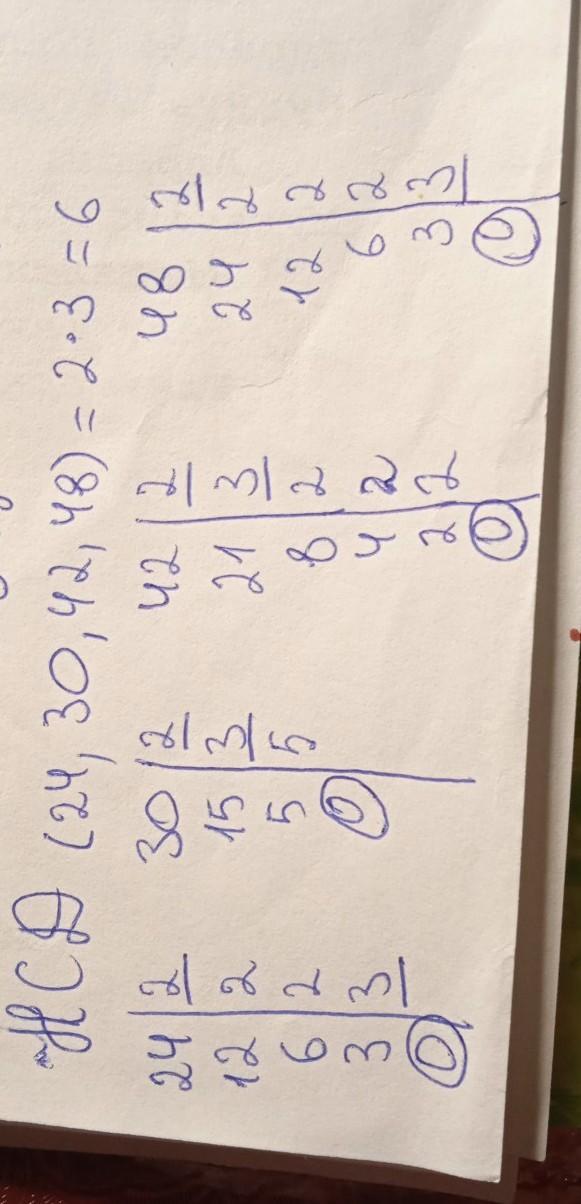 НСД (24, 30, 42, 48) = 2·3 = 6
24 2 30 2 42 2 48 2
12 2 15 3 21 3 24 2
6 2 5 5 8 2 12 2
3 3 0 4 2 6 2
0 2 2 3 3
0 0